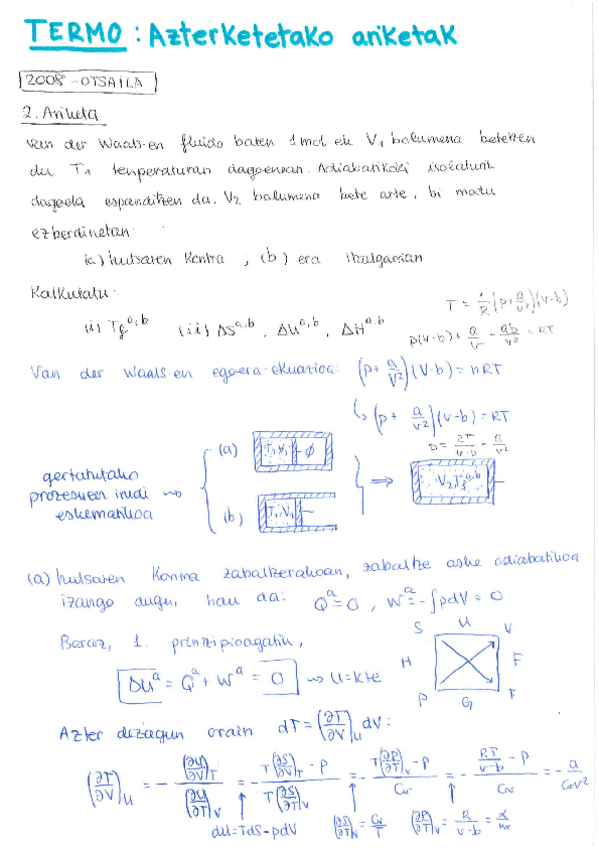 TERMO : Azterketetako ariketak
2008 - OTSAILA
2. Ariketa
Van der Waals-en fluido baten 1 mol ek V₁ bolumena betetzen
du T₁ tenperaturan dagoenean. Adiabatikoki isolaturik
dagoela espanditzen da, V₂ bolumena bete arte, bi modu
ezberdinetan:
(a) hutsaren kontra, (b) era itzulgarrian
Kalkulatu:
(i) T_f^{a,b} (ii) ΔS^{a,b}, ΔU^{a,b}, ΔH^{a,b}
T = 1/R (p + a/v²)(v-b)
p(v-b) + a/v - ab/v² = RT
Van der Waals-en egoera-ekuazioa: (p + a/v²)(V-b) = nRT
↳ (p + a/v²)(v-b) = RT
p = RT/(v-b) - a/v²
gertatutako
prozesuen irudi
eskematikoa
(a) T₁,V₁ ∅
(b) T₁,V₁
⇒ V₂ T_f^{a,b}
(a) hutsaren kontra zabaltzerakoan, zabaltze aske adiabatikoa
izango dugu, hau da: Q^a = 0, W^a = -∫pdV = 0
Beraz, 1. printzipioagatik,
ΔU^a = Q^a + W^a = 0 → U = kte
S U V
H F
P G T
Azter dezagun orain dT = (∂T/∂V)_U dV:
(∂T/∂V)_U = - (∂U/∂V)_T / (∂U/∂T)_V = - (T(∂S/∂V)_T - p) / (T(∂S/∂T)_V) = - (T(∂P/∂T)_V - p) / Cv = - (RT/(v-b) - p) / Cv = - a/(Cv v²)
dU = TdS - pdV (∂S/∂T)_V = Cv/T (∂P/∂T)_V = R/(v-b) = α/κ_T